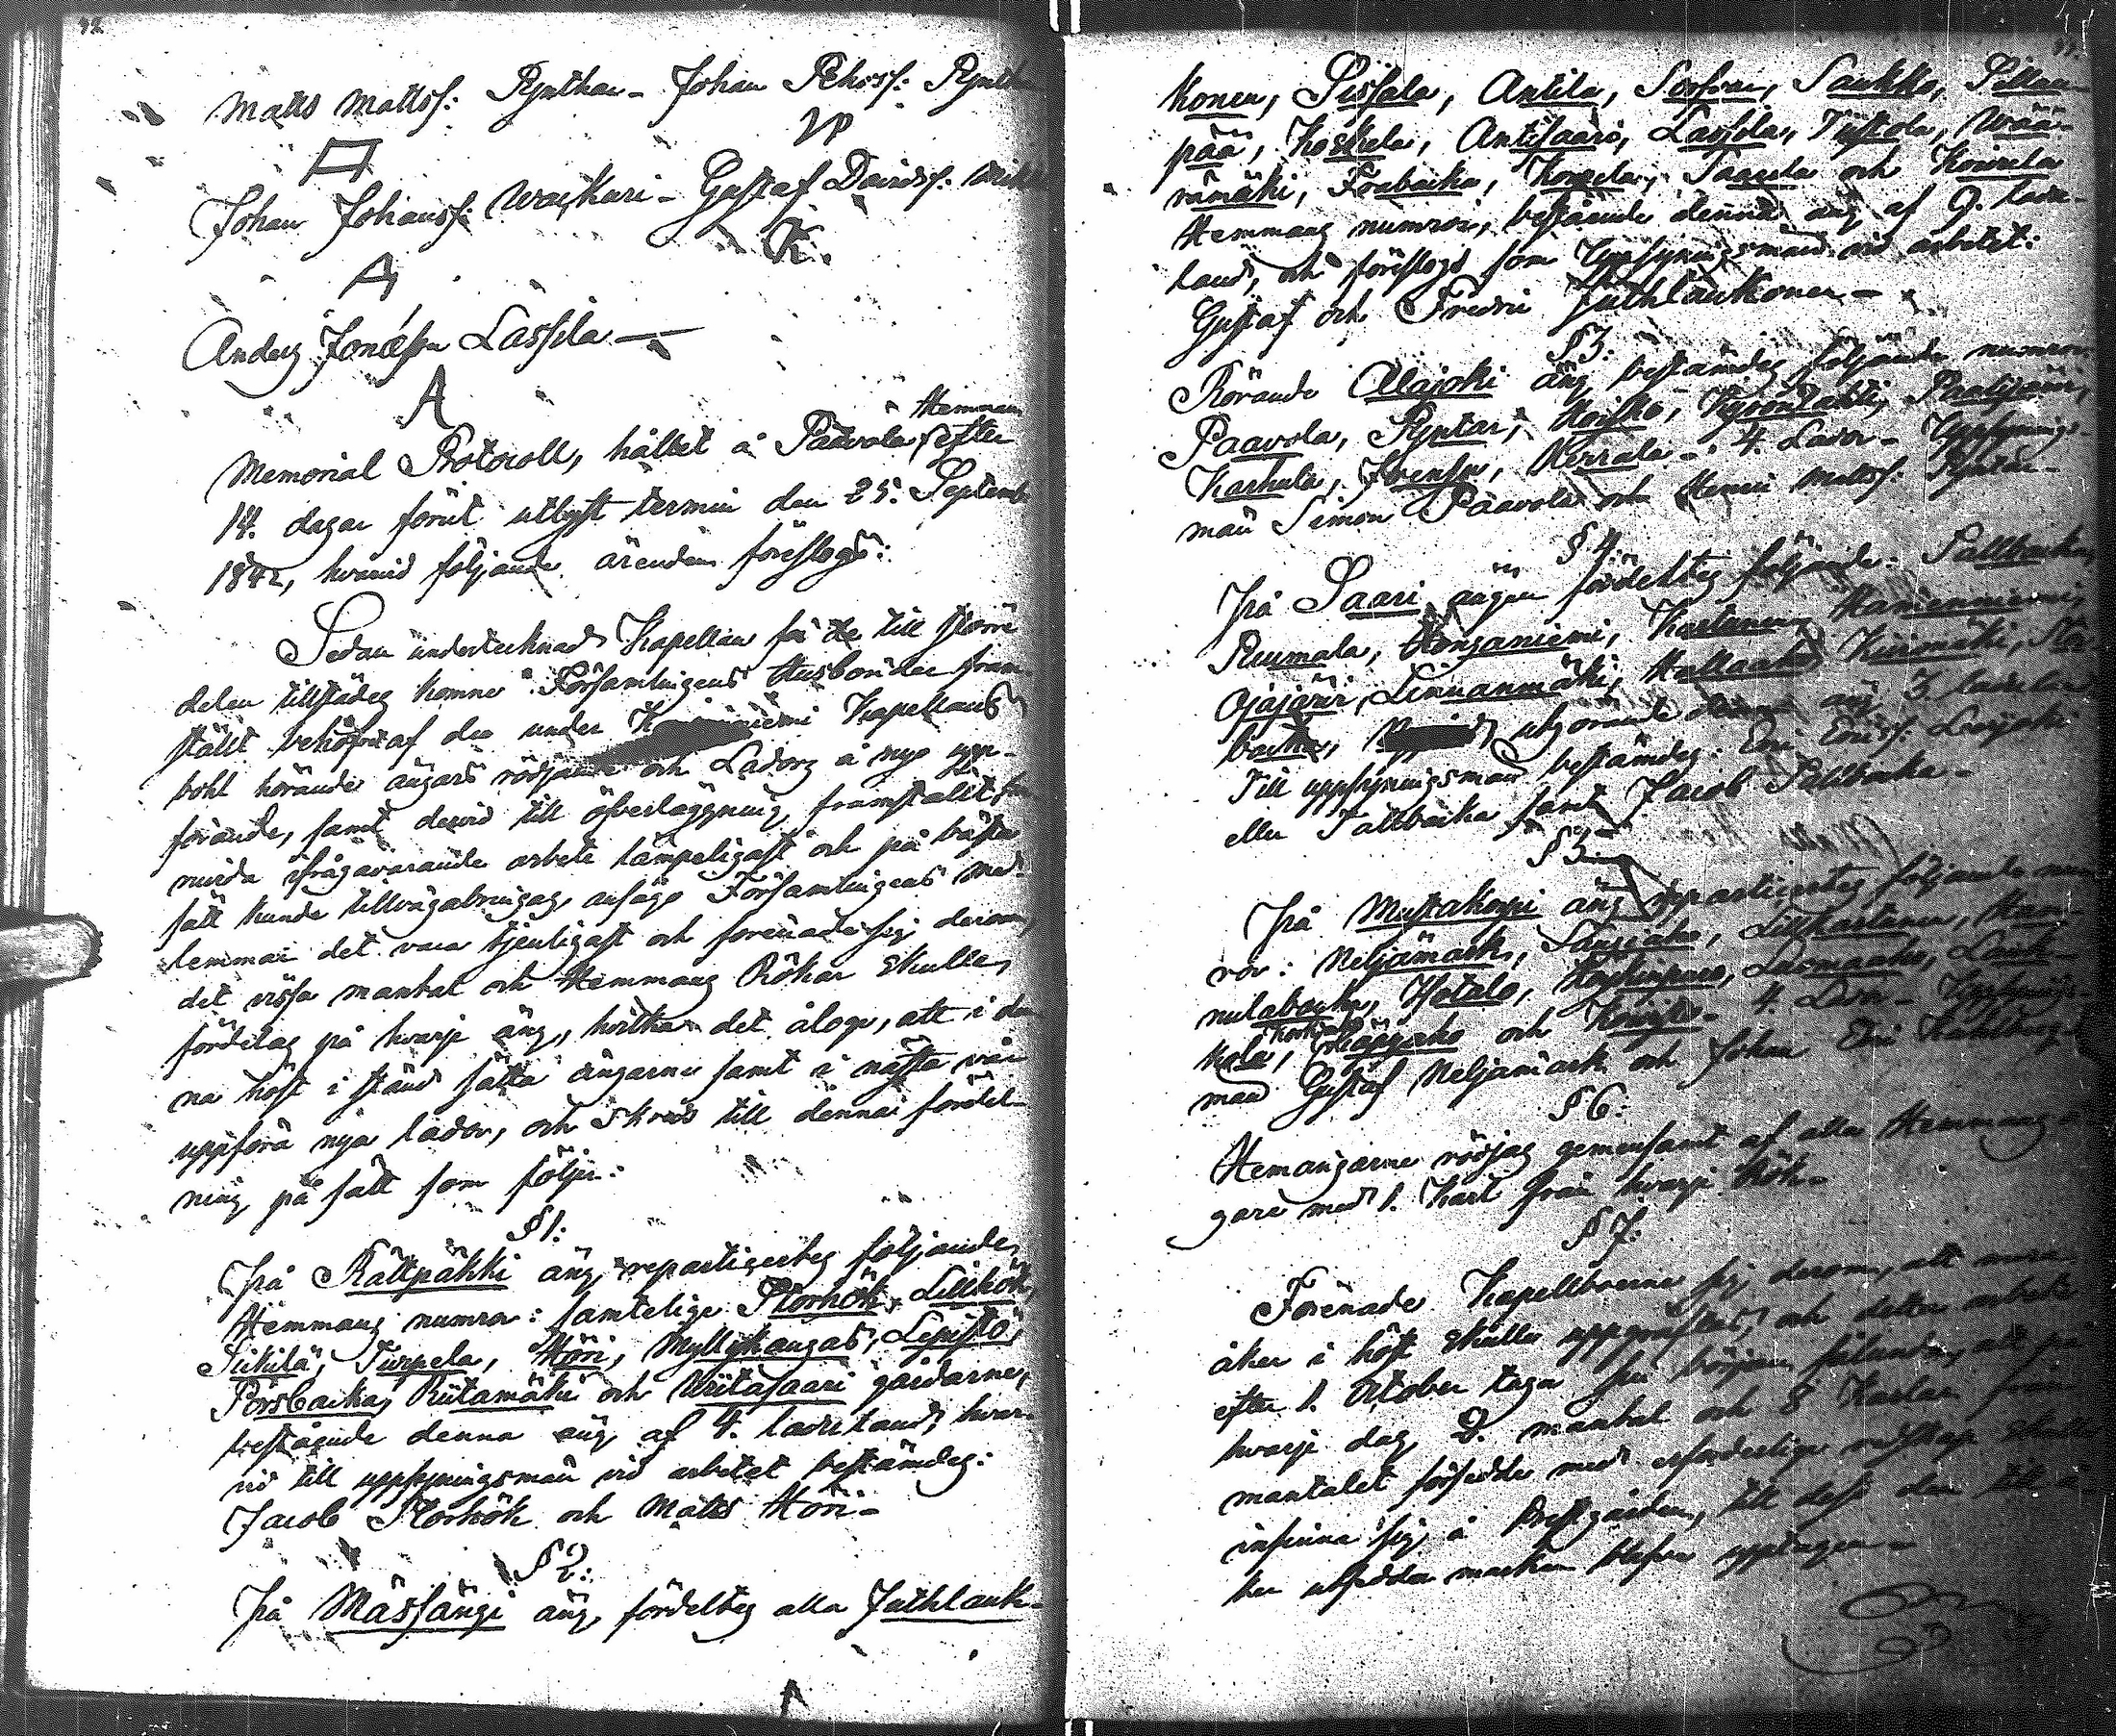 42.
Matts Mattss: Ryntkar - Johan Rikuss: Rynt
Johan Johanss: Waikari - Gustaf Davidss: Mik
Anders Jonæss Lassila —
Memorial Protocoll, hållet å Paavola Hemman efter
14. dagar förut utlyst termin den 25. Septemb
1842, hvarvid följande ärenden föreslogs:
Sedan undertecknad Kapellan för de till större
delen tillstädes komne Församlingens Husbönder fram
ställt behofvet af de under Kapellans
bohl hörande ängars rödjande och Lador å nyo upp-
förande, samt dervid till öfverläggning framställt huru
ifrågavarande arbete lämpeligast och på bästa
sätt kunde tillvägabringas, ansågo Församlingens Med-
lemmar det vara tjenligast och förenade sig derom,
det vissa mantal och Hemmans Rökar skulle
fördelas på hvarje äng, hvilka det ålage, att i den
na höst i stånd sätta ängarne samt i nästa vår
uppföra nya lador, och skreds till denna fördel-
ning på sätt som följer:
§ 1:
På Rättpäkki äng, repartigertes följande
Hemmans numror: samtelige Storhök, Lillhök,
Siikilä, Turpela, Höri, Myllykangas, Lepistö,
Pörsbacka, Riitamäki och Wiitasaari gårdarne,
bestående denna äng af 4. laduland, hvar-
vid till uppsyningsmän vid arbetet bestämdes:
Jacob Storhök och Matts Höri -
§ 2:
På Mässängi äng, fördeltes alla Juthlank-
konen, Pissala, Antila, Sorsvan, Saukko, Pitkan
pää, Koskela, Antisaari, Lassila, Tustola, Wää-
rämäki, Forsbacka, Korpela, Taanila och Koivula
Hemmans numror, bestående denna äng af 9. ladu-
land, och föreslogs som Uppsyningsmän vid arbetet:
Gustaf och Fredric Juthlankonen -
§ 3:
Rörande Alajoki äng bestämdes följande numror:
Paavola, Ryntar, Koisko,
Karhula, Jvenson, Kerrala - 4. Lador - Uppsynings-
män Simon Paavola och Henric Mattss: Ryntar -
§ 4:
På Saari ängen fördeltes följande: Pallbacka,
Ruumala, Honganiemi, Kastunen, Hamenniemi,
Ojajärvi, Linnanmäki, Kiismäki, Stor
backa, utgörande denna äng 3. ladulan
Till uppsyningsmän bestämdes: Eric Ericss: Lavijoki
eller Tallbacka samt Jacob Pallbacka -
§ 5
På Mustakorpi äng repartigertes följande num
ror: Neljämark, Lillkastunen, Han-
nulabacka, Hotalo, Lasmaaho, Lauk-
kola, och Koivisto - 4. Lador - Uppsynings-
män Gustaf Neljämark och Johan Eric
§ 6:
Hemängarne rödjas gemensamt af alla Hemmans ä
gare med 1. Karl från hvarje Rök -
§ 7:
Förenade Kapellboerne sig derom, att
åker i höst skulle uppgräftas, och detta arbete
efter 1. October taga sin början sålunda, att på
hvarje dag 2. mantal och 8 Karlar från
mantalet försedde med erforderlige redskap skulle
infinna sig å Prestgården, till dess den
ker utsedda marken blefve upptagen -